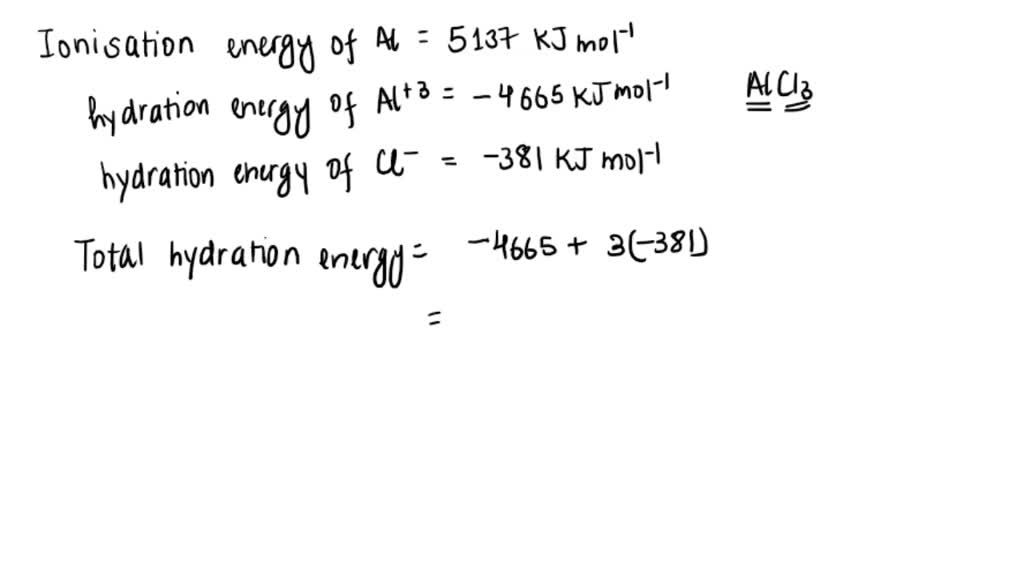 Ionisation energy of Al = 5137 KJ mol⁻¹
hydration energy of Al⁺³ = -4665 KJ mol⁻¹ AlCl₃
hydration energy of Cl⁻ = -381 KJ mol⁻¹
Total hydration energy = -4665 + 3(-381)
=